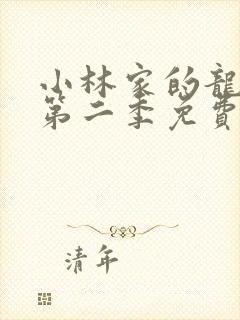 小林家的龍
第二季免費
清年